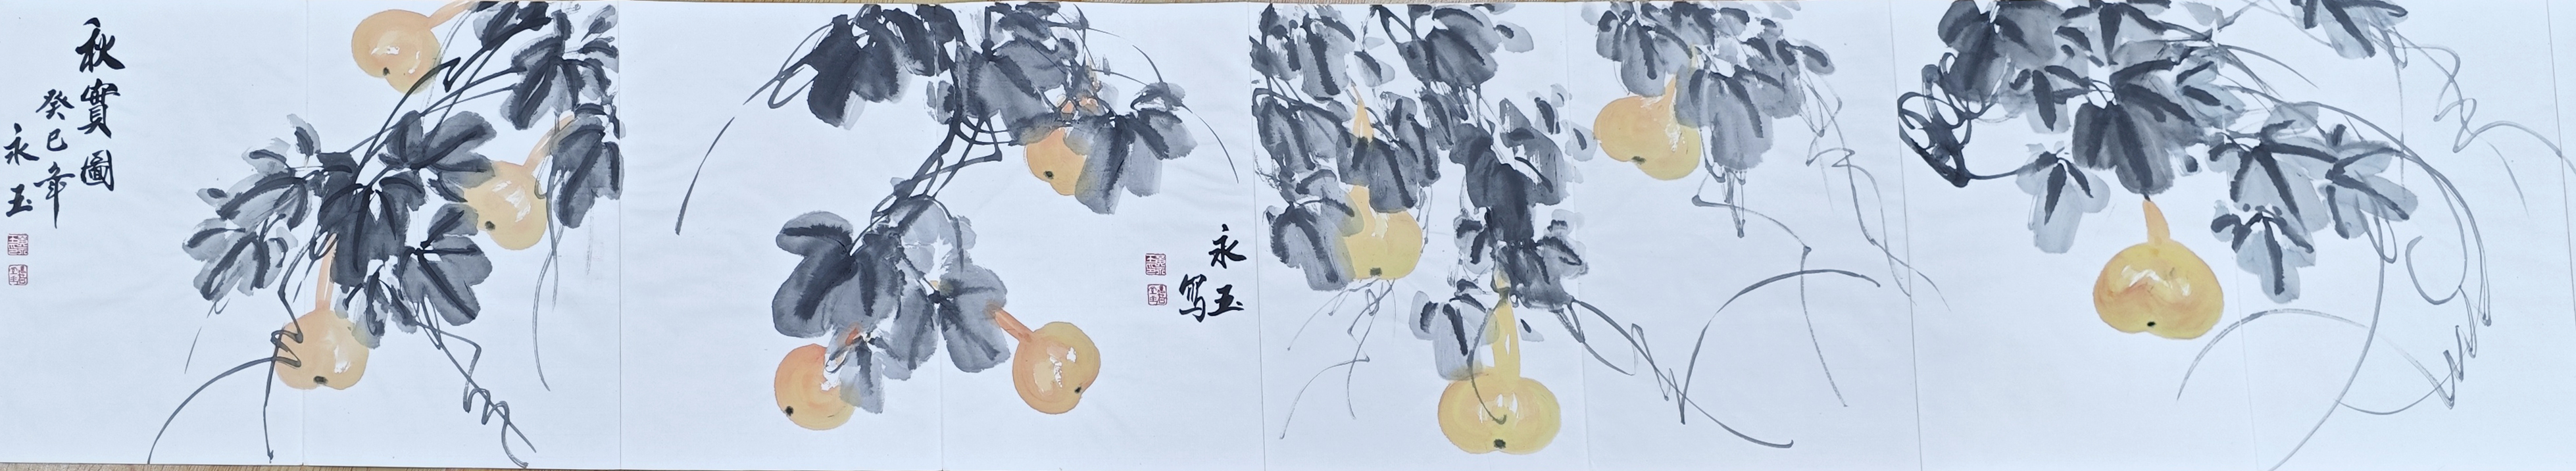 秋實圖
癸巳年
永玉
永玉
写